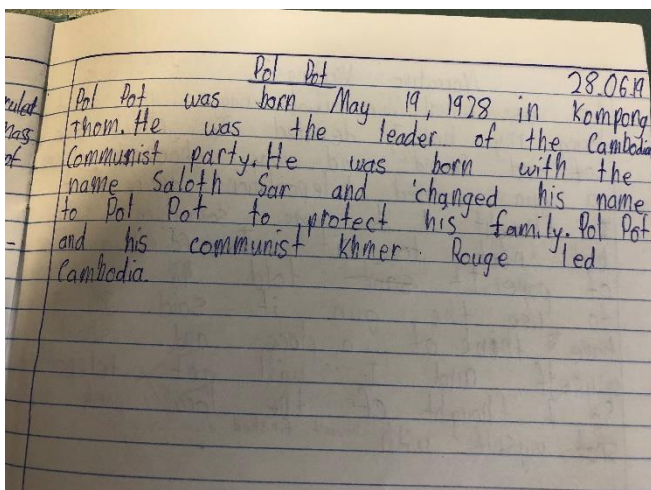 Pol Pot
28.06.19
Pol Pot was born May 19, 1928 in Kompong
Thom. He was the leader of the Cambodia
Communist party. He was born with the
name Saloth Sar and changed his name
to Pol Pot to protect his family. Pol Pot
and his communist Khmer Rouge led
Cambodia.
of